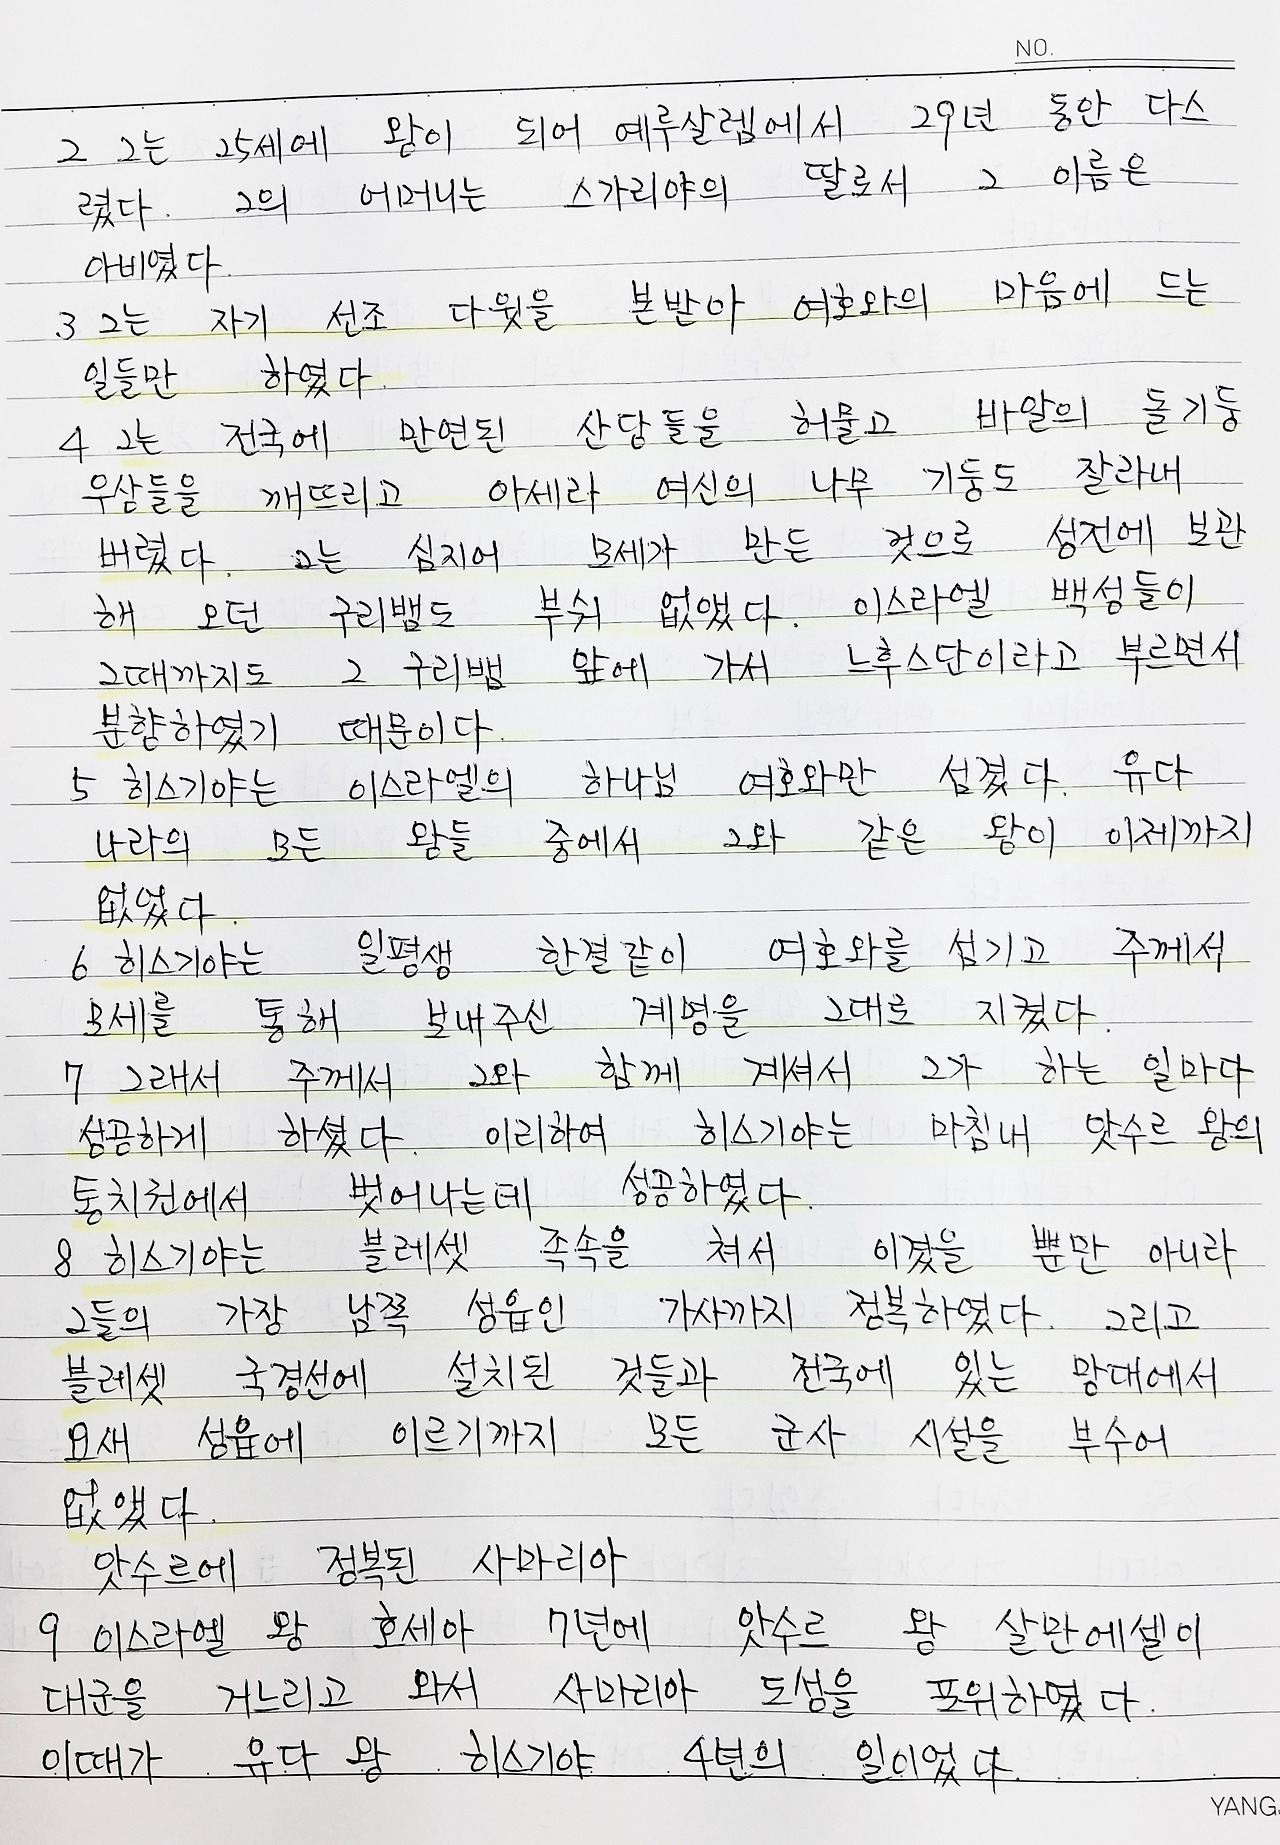 NO.
2 그는 25세에 왕이 되어 예루살렘에서 29년 동안 다스
렸다. 그의 어머니는 스가리야의 딸로서 그 이름은
아비였다.
3 그는 자기 선조 다윗을 본받아 여호와의 마음에 드는
일들만 하였다.
4 그는 전국에 만연된 산당들을 허물고 바알의 돌기둥
우상들을 깨뜨리고 아세라 여신의 나무 기둥도 잘라내
버렸다. 그는 심지어 모세가 만든 것으로 성전에 보관
해 오던 구리뱀도 부숴 없앴다. 이스라엘 백성들이
그때까지도 그 구리뱀 앞에 가서 느후스단이라고 부르면서
분향하였기 때문이다.
5 히스기야는 이스라엘의 하나님 여호와만 섬겼다. 유다
나라의 모든 왕들 중에서 그와 같은 왕이 이제까지
없었다.
6 히스기야는 일평생 한결같이 여호와를 섬기고 주께서
모세를 통해 보내주신 계명을 그대로 지켰다.
7 그래서 주께서 그와 함께 계셔서 그가 하는 일마다
성공하게 하셨다. 이리하여 히스기야는 마침내 앗수르 왕의
통치권에서 벗어나는데 성공하였다.
8 히스기야는 블레셋 족속을 쳐서 이겼을 뿐만 아니라
그들의 가장 남쪽 성읍인 가사까지 정복하였다. 그리고
블레셋 국경선에 설치된 것들과 전국에 있는 망대에서
요새 성읍에 이르기까지 모든 군사 시설을 부수어
없앴다.
앗수르에 정복된 사마리아
9 이스라엘 왕 호세아 7년에 앗수르 왕 살만에셀이
대군을 거느리고 와서 사마리아 도성을 포위하였다.
이때가 유다 왕 히스기야 4년의 일이었다.